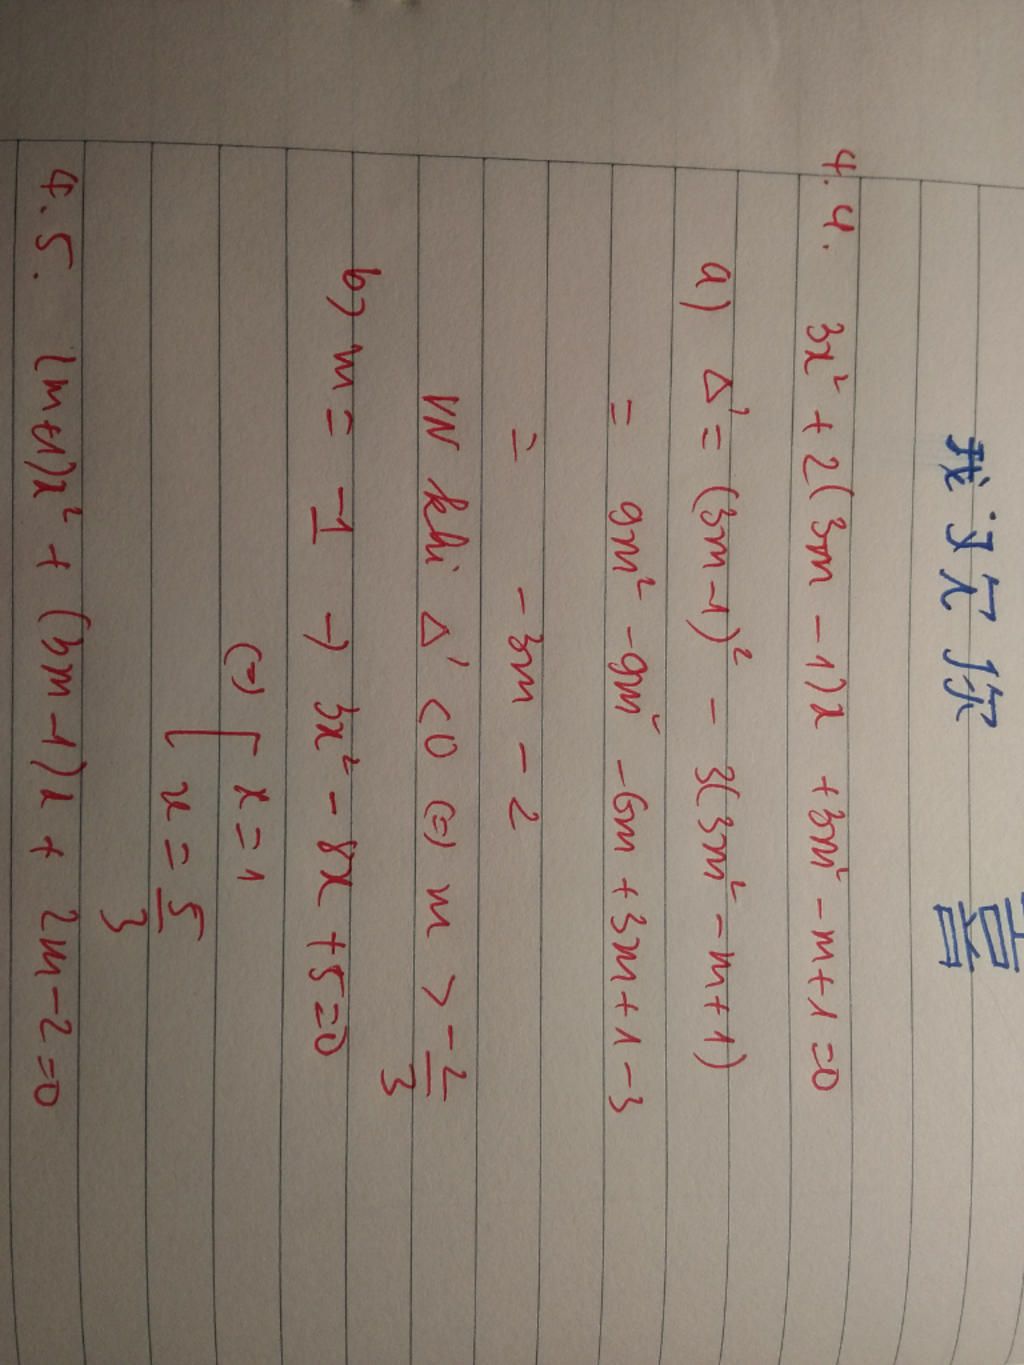 我 欠 你
喜
4.4. 3x² + 2(3m - 1)x + 3m² - m + 1 = 0
a) Δ' = (3m - 1)² - 3(3m² - m + 1)
= 9m² - 9m² - 6m + 3m + 1 - 3
= - 3m - 2
VN khi Δ' < 0 (=) m > -2/3
b) m = -1 → 3x² - 8x + 5 = 0
(=) [ x = 1
x = 5/3
4.5. (m+1)x² + (3m - 1)x + 2m - 2 = 0